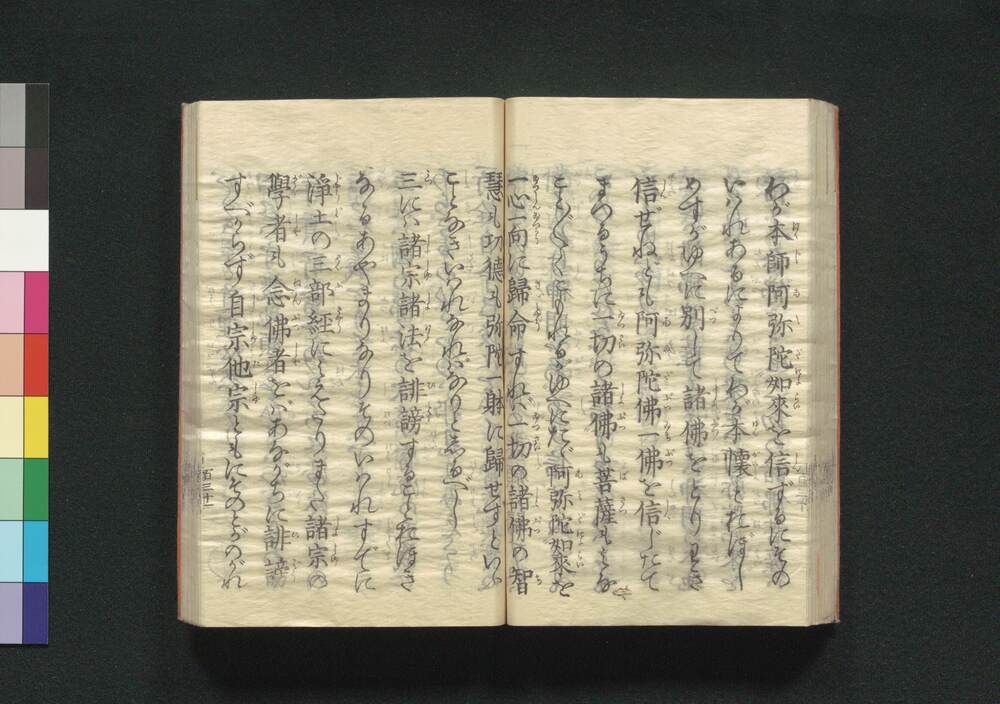 わが本師阿弥陀如來を信ずるにその
いはれあるによりてわが本懷とおぼし
めすがゆへに別して諸佛をとりわき
信ぜねども阿弥陀佛一佛を信じたて
まつるうちに一切の諸佛も菩薩もみな
ことごとくこもれるがゆへにたゞ阿弥陀如來を
一心一向に歸命すれば一切の諸佛の智
慧も功德も弥陀一躰に歸せずといふ
ことなきいはれなればなりとしるべし
三には諸宗諸法を誹謗することおほき
なるあやまりなりそのいはれすでに
淨土の三部經にみえたりまた諸宗の
學者も念佛者をばあながちに誹謗
すべからず自宗他宗ともにそのとがのがれ
百三十一